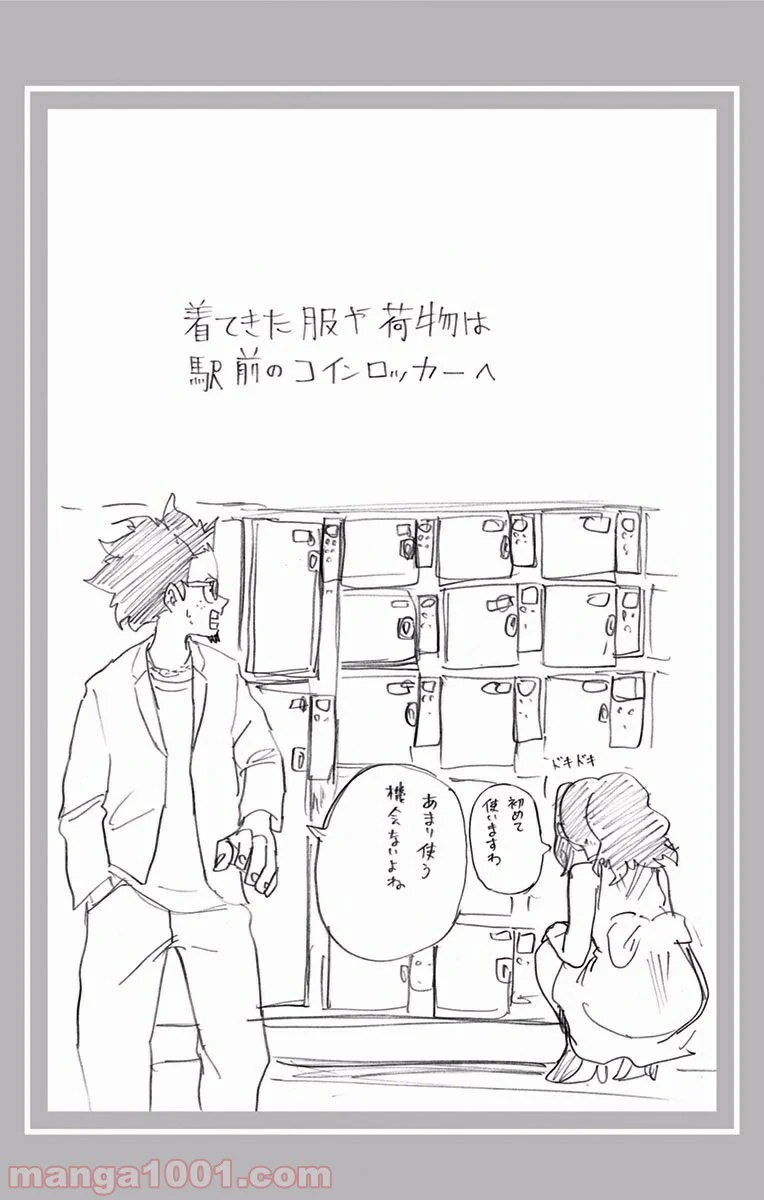 着てきた服や荷物は
駅前のコインロッカーへ
ドキドキ
初めて
使いますわ
あまり使う
機会ないよね
manga1001.com